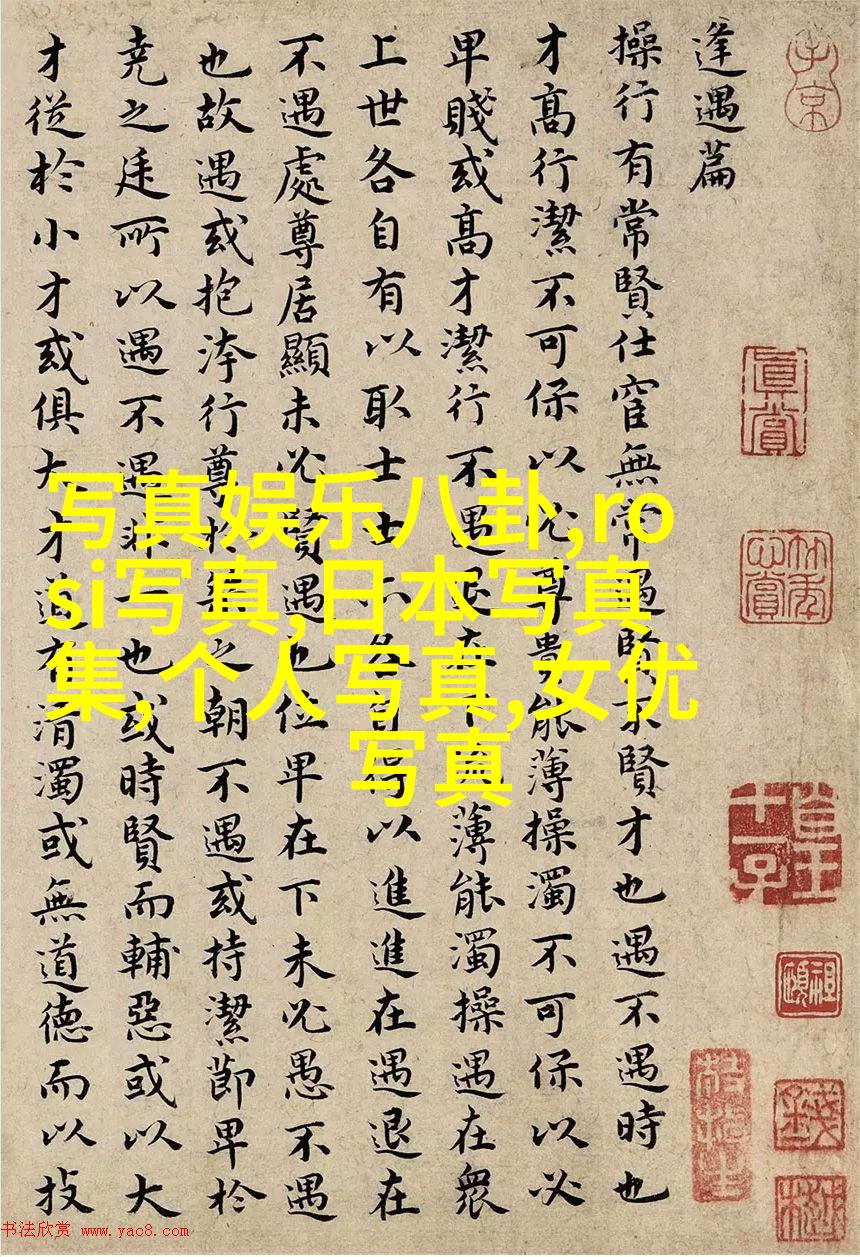 逢遇篇
操行有常賢仕宦無常遇賢不賢才也遇不遇時也
才高行潔不可保以必尊貴能薄操濁不可保以必
卑賤或高才潔行不遇退在下流薄能濁操遇在衆
上世各自有以取士士亦各自得以進進在遇退在
不遇處尊居顯未必賢遇也位卑在下未必愚不遇
也故遇或抱洿行尊於桀之朝不遇或持潔節卑於
堯之廷所以遇不遇非一也或時賢而輔惡或以大
才從於小才或俱大才道有清濁或無道德而以技
写真娱乐八卦,ro
si写真,日本写真
集,个人写真,女优
写真
子京
真賞
书法欣赏 www.yac8.com